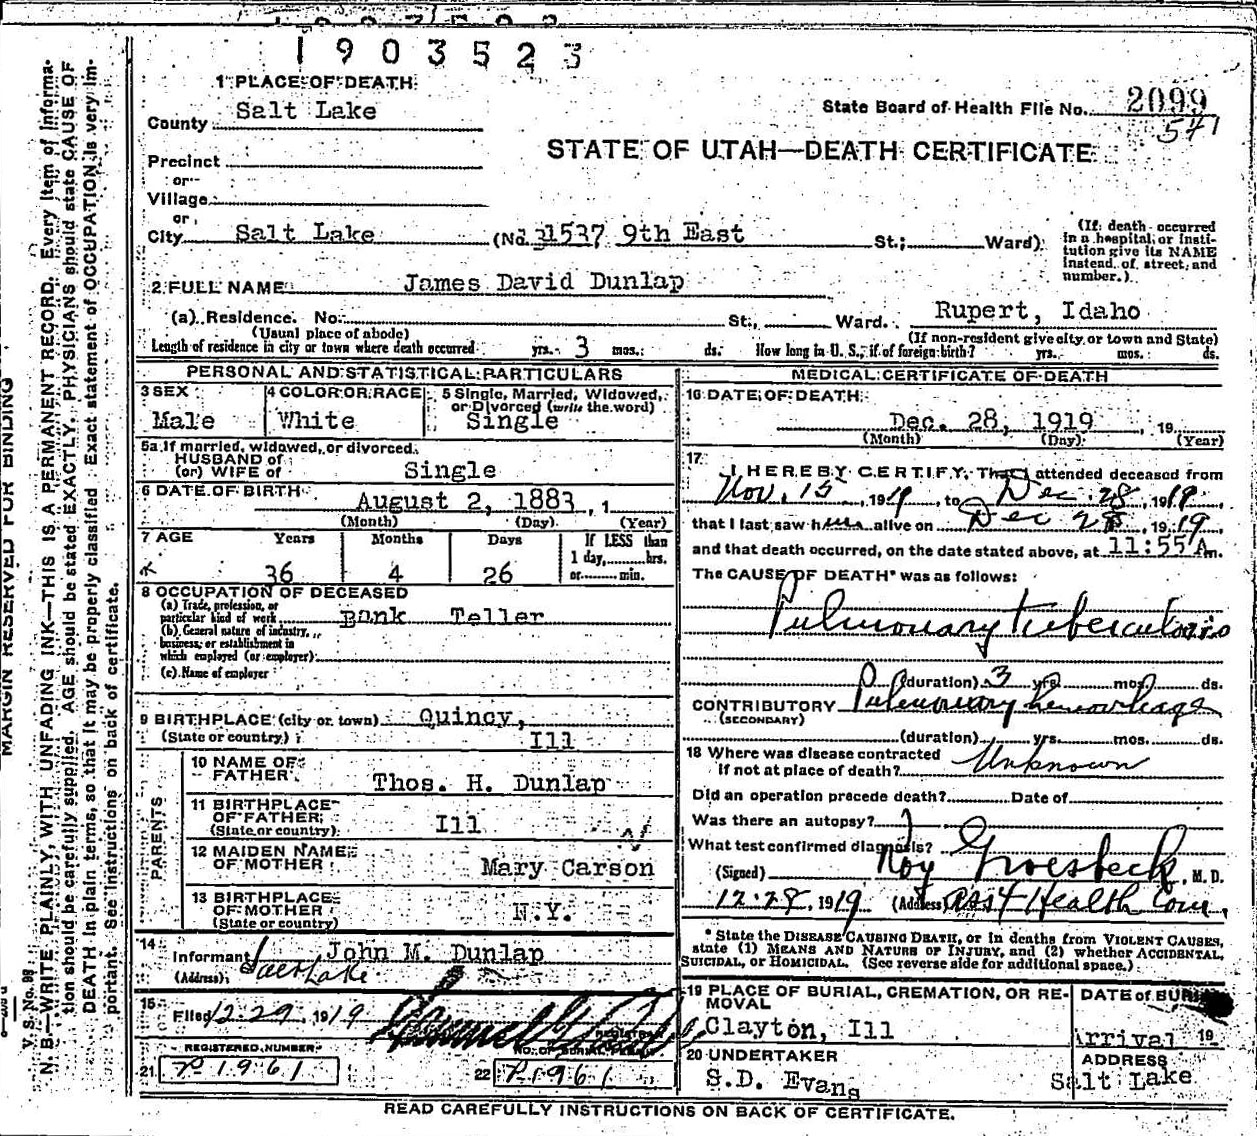 1903523
1 PLACE OF DEATH
State Board of Health File No. 2099
541
County Salt Lake
STATE OF UTAH—DEATH CERTIFICATE
Precinct
or
Village
or
City Salt Lake (No. 1537 9th East St.; Ward)
(If death occurred in a hospital or institution give its NAME instead of street and number.)
2 FULL NAME James David Dunlap
(a) Residence. No. St., Ward. Rupert, Idaho
(Usual place of abode) (If non-resident give city or town and State)
Length of residence in city or town where death occurred yrs. 3 mos. ds. How long in U. S., if of foreign birth? yrs. mos. ds.
PERSONAL AND STATISTICAL PARTICULARS
3 SEX
Male
4 COLOR OR RACE
White
5 Single, Married, Widowed, or Divorced (write the word)
Single
5a If married, widowed, or divorced
HUSBAND of
(or) WIFE of Single
6 DATE OF BIRTH August 2, 1883, 1
(Month) (Day) (Year)
7 AGE Years Months Days If LESS than
1 day, hrs.
36 4 26 or min.
8 OCCUPATION OF DECEASED
(a) Trade, profession, or
particular kind of work Bank Teller
(b) General nature of industry,
business, or establishment in
which employed (or employer)
(c) Name of employer
9 BIRTHPLACE (city or town) Quincy,
(State or country) Ill
PARENTS
10 NAME OF
FATHER Thos. H. Dunlap
11 BIRTHPLACE
OF FATHER
(State or country) Ill
12 MAIDEN NAME
OF MOTHER Mary Carson
13 BIRTHPLACE
OF MOTHER
(State or country) N.Y.
14
Informant John M. Dunlap
(Address) Salt Lake
15
Filed 12-29, 1919
REGISTRAR
REGISTERED NUMBER
21 P1961
NO. OF BURIAL PERMIT
22 P1961
MEDICAL CERTIFICATE OF DEATH
16 DATE OF DEATH
Dec. 28, 1919, 19
(Month) (Day) (Year)
17
I HEREBY CERTIFY, That I attended deceased from
Nov. 15, 1919, to Dec 28, 1919,
that I last saw him alive on Dec 28, 1919
and that death occurred, on the date stated above, at 11:55 A m.
The CAUSE OF DEATH* was as follows:
Pulmonary tuberculosis
(duration) 3 yrs. mos. ds.
CONTRIBUTORY Pulmonary hemorrhage
(SECONDARY)
(duration) yrs. mos. ds.
18 Where was disease contracted
If not at place of death? Unknown
Did an operation precede death? Date of
Was there an autopsy?
What test confirmed diagnosis?
(Signed) Roy Groesbeck, M. D.
12-28, 1919 (Address) Ass't Health Com.
* State the DISEASE CAUSING DEATH, or in deaths from VIOLENT CAUSES,
state (1) MEANS AND NATURE OF INJURY, and (2) whether ACCIDENTAL,
SUICIDAL, or HOMICIDAL. (See reverse side for additional space.)
19 PLACE OF BURIAL, CREMATION, OR RE-
MOVAL
Clayton, Ill
DATE of BURIAL
Arrival 19
20 UNDERTAKER
S.D. Evans
ADDRESS
Salt Lake
READ CAREFULLY INSTRUCTIONS ON BACK OF CERTIFICATE.
MARGIN RESERVED FOR BINDING
V. S. No. 98
N. B.—WRITE PLAINLY, WITH UNFADING INK—THIS IS A PERMANENT RECORD. Every item of informa-
tion should be carefully supplied. AGE should be stated EXACTLY. PHYSICIANS should state CAUSE OF
DEATH in plain terms, so that it may be properly classified. Exact statement of OCCUPATION is very im-
portant. See instructions on back of certificate.